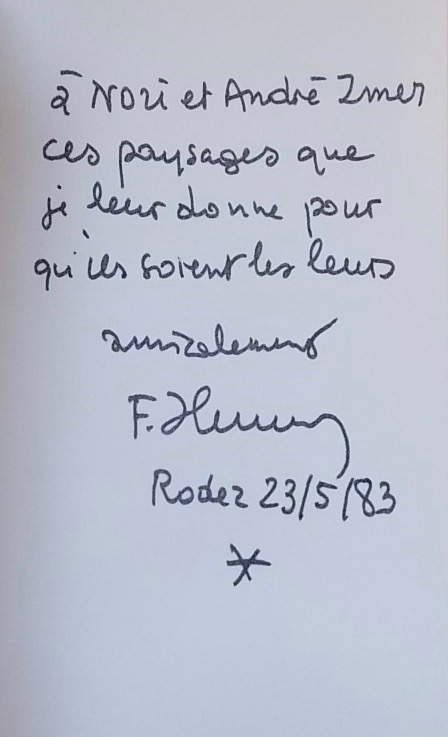 à Nori et André Imer
ces paysages que
je leur donne pour
qu'ils soient les leurs
amicalement
F.
Rodez 23/5/83